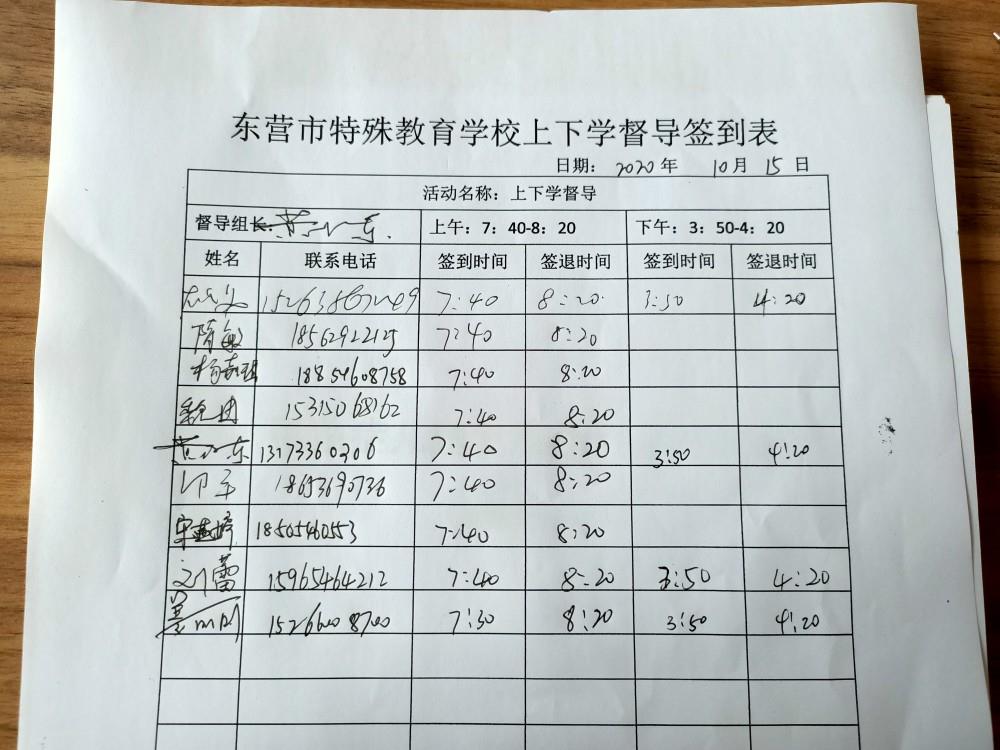 东营市特殊教育学校上下学督导签到表
日期： 2020 年 10 月 15 日
活动名称：上下学督导
督导组长： 上午：7：40-8：20 下午：3：50-4：20
姓名 联系电话 签到时间 签退时间 签到时间 签退时间
7:40 8:20 3:50 4:20
隋敏 18562922125 7:40 8:20
18854608758 7:40 8:20
魏田 15315068162 7:40 8:20
13173360206 7:40 8:20 3:50 4:20
18653690736 7:40 8:20
宋 18505460553 7:40 8:20
刘蕾 15965464212 7:40 8:20 3:50 4:20
15266008700 7:30 8:20 3:50 4:20